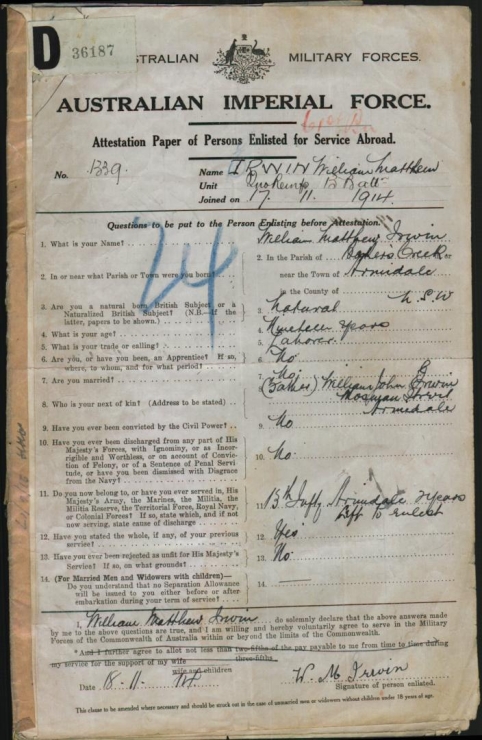 D
36187
AUSTRALIAN MILITARY FORCES.
AUSTRALIAN IMPERIAL FORCE.
Attestation Paper of Persons Enlisted for Service Abroad.
No. 1339. Name IRWIN William Matthew
Unit B Batt
Joined on 17. 11. 1914.
24
Questions to be put to the Person Enlisting before Attestation.
1. What is your Name? William Matthew Irwin
2. In or near what Parish or Town were you born? 2. In the Parish of Bakers Creek or
near the Town of Armidale
in the County of N.S.W
3. Are you a natural born British Subject or a
Naturalized British Subject? (N.B.—If the
latter, papers to be shown.) 3. Natural
4. What is your age? 4. Nineteen years
5. What is your trade or calling? 5. Laborer
6. Are you, or have you been, an Apprentice? If so,
where, to whom, and for what period? 6. No
7. Are you married? 7. No
8. Who is your next of kin? (Address to be stated) 8. (Father) William John Irwin
Mosman Street
Armidale
9. Have you ever been convicted by the Civil Power? 9. No
10. Have you ever been discharged from any part of His
Majesty's Forces, with Ignominy, or as Incor-
rigible and Worthless, or on account of Convic-
tion of Felony, or of a Sentence of Penal Servi-
tude, or have you been Dismissed with Disgrace
from the Navy? 10. No.
11. Do you now belong to, or have you ever served in, His
Majesty's Army, the Marines, the Militia, the
Militia Reserve, the Territorial Force, Royal Navy,
or Colonial Forces? If so, state which, and if not
now serving, state cause of discharge 11. Armidale 2 years
left to enlist
12. Have you stated the whole, if any, of your previous
service? 12. Yes
13. Have you ever been rejected as unfit for His Majesty's
Service? If so, on what grounds? 13. No
14. (For Married Men and Widowers with children)—
Do you understand that no Separation Allowance
will be issued to you either before or after
embarkation during your term of service? 14.
I, William Matthew Irwin do solemnly declare that the above answers made
by me to the above questions are true, and I am willing and hereby voluntarily agree to serve in the Military
Forces of the Commonwealth of Australia within or beyond the limits of the Commonwealth.
* And I further agree to allot not less than two-fifths of the pay payable to me from time to time during
three-fifths
my service for the support of my wife
wife and children
Date 18. 11. 14 W. M. Irwin
Signature of person enlisted.
This clause to be amended where necessary and should be struck out in the case of unmarried men or widowers without children under 18 years of age.